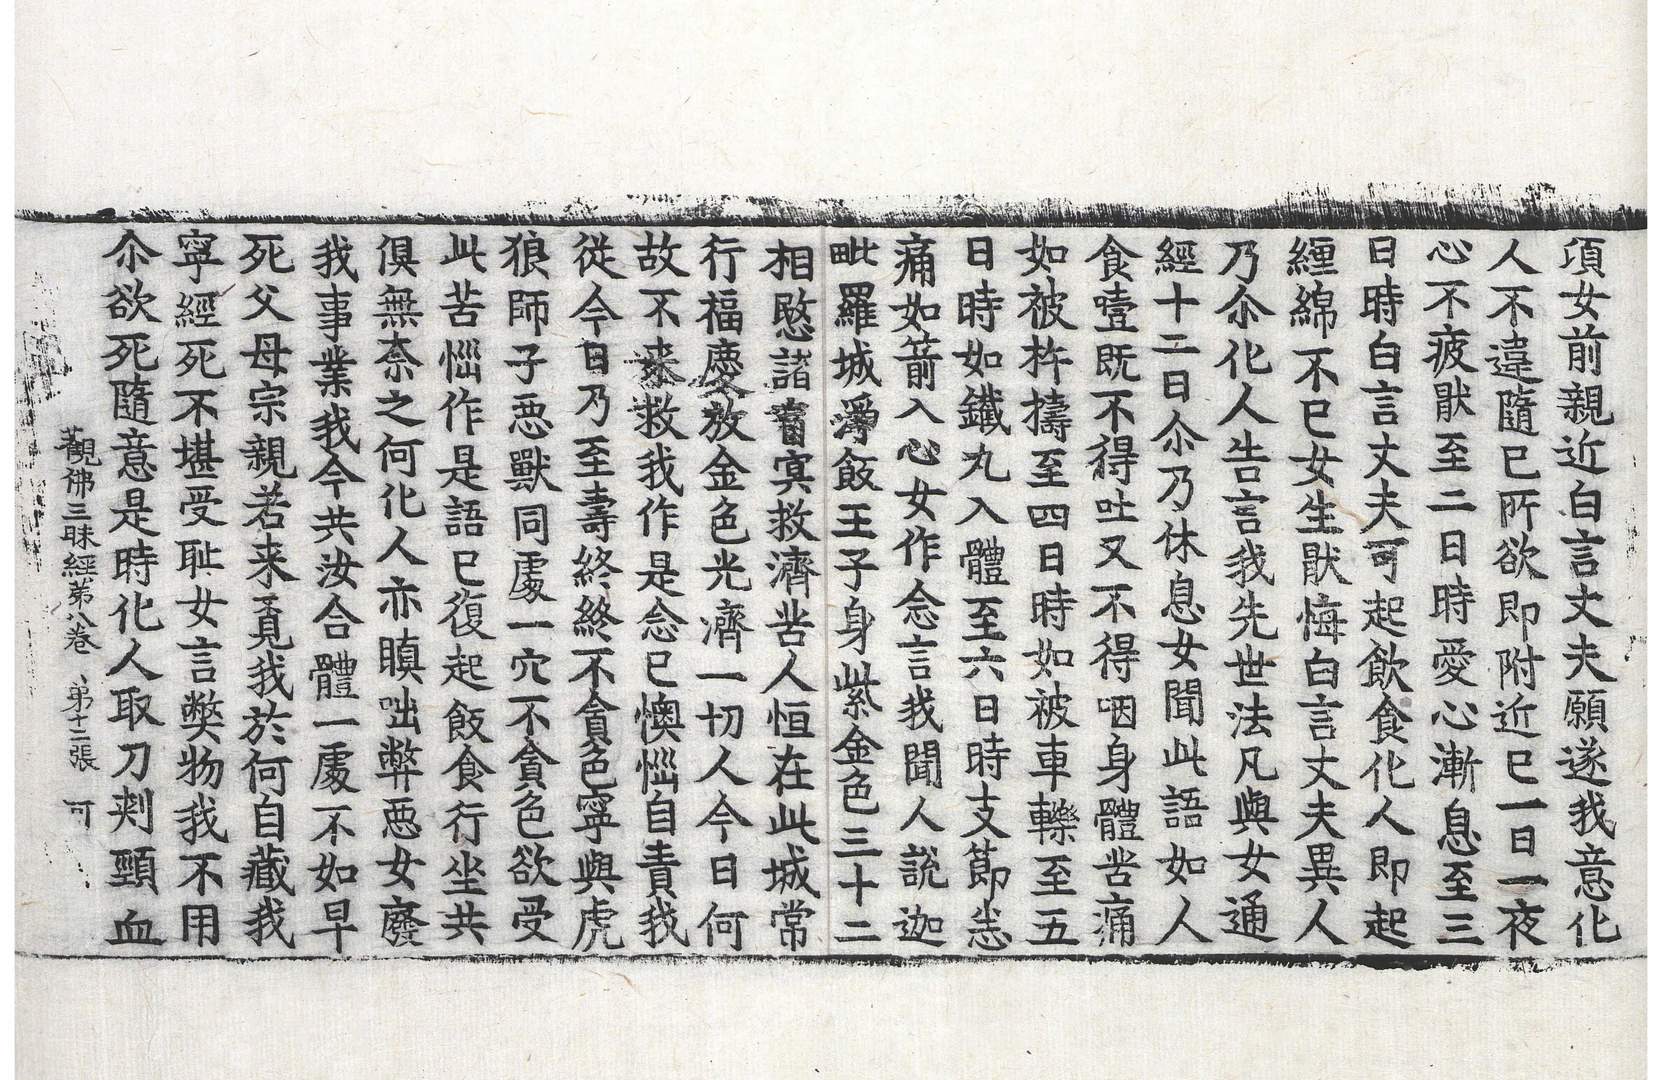 項女前親近白言丈夫願遂我意化
人不違隨已所欲即附近已一日一夜
心不疲猒至二日時愛心漸息至三
日時白言丈夫可起飲食化人即起
纏綿不已女生猒悔白言丈夫異人
乃尒化人告言我先世法凡與女通
經十二日尒乃休息女聞此語如人
食噎既不得吐又不得咽身體苦痛
如被杵擣至四日時如被車轢至五
日時如鐵丸入體至六日時支節悉
痛如箭入心女作念言我聞人說迦
毗羅城淨飯王子身紫金色三十二
相愍諸盲冥救濟苦人恒在此城常
行福慶放金色光濟一切人今日何
故不来救我作是念已懊惱自責我
從今日乃至壽終終不貪色寧與虎
狼師子惡獸同處一穴不貪色欲受
此苦惱作是語已復起飯食行坐共
俱無柰之何化人亦瞋咄弊惡女廢
我事業我今共汝合體一處不如早
死父母宗親若来覓我於何自藏我
寧經死不堪受恥女言弊物我不用
尒欲死隨意是時化人取刀刺頸血
觀佛三昧經第八卷　第十二張　可